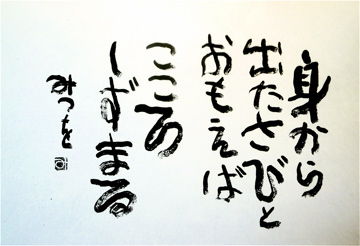 身から
出たさびと
おもえば
こころ
しずまる
みつを